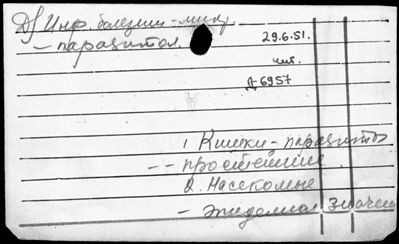 Инф. болезни - микр
- паразитол.
29.6.51.
чит.
Д 6957
1 Клитки - паразиты
-- простейшие.
2. Насекомые
- эпидемиол. значен